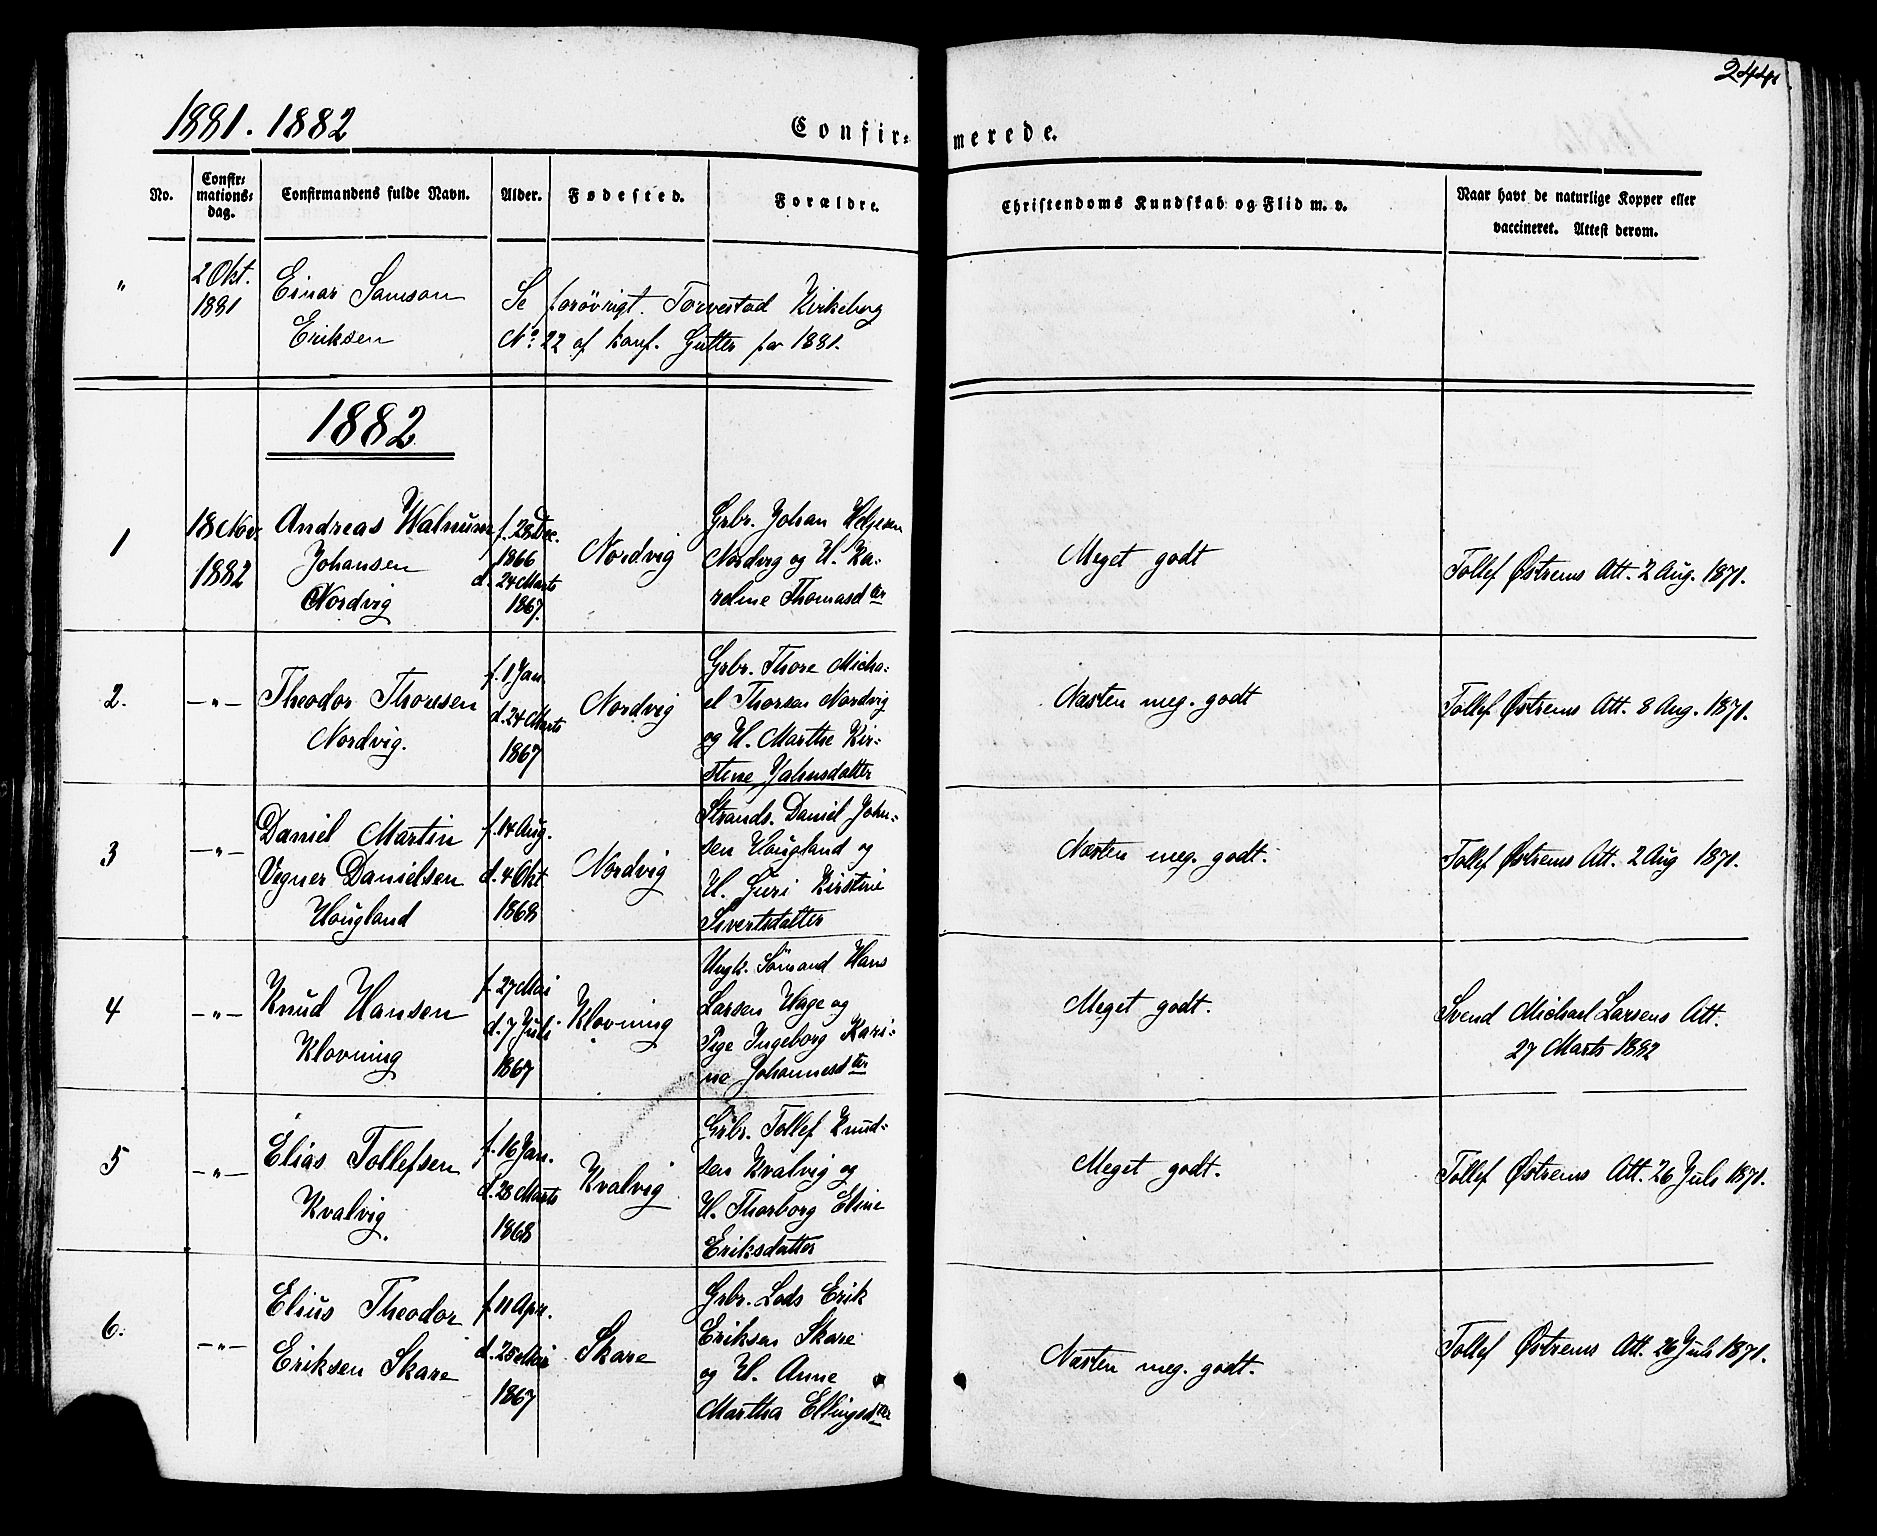 244
1881. 1882
Confir=
merede.
No.
Confir=
mations=
dag.
Confirmandens fulde Navn.
Alder.
Fødested.
Forældre.
Christendoms Kundskab og Flid m. v.
Naar havt de naturlige Kopper eller
vaccineret. Attest derom.
"
2 Okt.
1881
Einar Samson
Eriksen
Se forøvrigt Torvestad Kirkebog
No. 22 af konf. Gutter for 1881.
1882
1
18 Nov.
1882
Andreas Walnum
Johansen
Nordvig
f. 28 Dec.
1866
d. 24 Marts
1867.
Nordvig
Grbr. Johan Helgesen
Nordvig og H. Ka=
reline Thomasdter
Meget godt
Tollef Østrems Att. 2 Aug. 1871.
2.
—"—
Theodor Thoresen
Nordvig.
f. 1 Jan.
d. 24 Marts
1867
Nordvig
Grbr. Thore Micha=
el Thorsen Nordvig
og H. Marthe Kir=
stine Jahnsdatter
Næsten meg. godt
Tollef Østrems Att. 8 Aug. 1871.
3
—"—
Daniel Martin
Vegner Danielsen
Hougland
f. 14 Aug.
d. 4 Okt
1868
Nordvig
Strands. Daniel John=
sen Hougland og
H. Guri Kirstine
Sivertsdatter
Næsten meg. godt.
Tollef Østrems Att. 2 Aug 1871.
4
—"—
Knud Hansen
Klovning
f. 27 Mai
d. 7 Juli
1867
Klovning
Ungk. Sömand Hans
Larsen Hage og
Pige Ingeborg Kari=
ne Johannesdter
Meget godt.
Svend Michael Larsens Att.
27 Marts 1882
5
—"—
Elias Tollefsen
Kvalvig.
f. 16 Jan.
d. 28 Marts
1868
Kvalvig
Grbr. Tollef Knud=
sen Kvalvig og
H. Thorborg Eline
Eriksdatter
Meget godt.
Tollef Østrems Att. 26 Juli 1871.
6.
—"—
Elius Theodor
Eriksen Skare
f. 11 Apr.
d. 25 Mai
1867
Skare
Grbr. Lods Erik
Eriksen Skare
og H. Anne
Martha Ellingsdter
Næsten meg. godt.
Tollef Østrems Att. 26 Juli 1871.